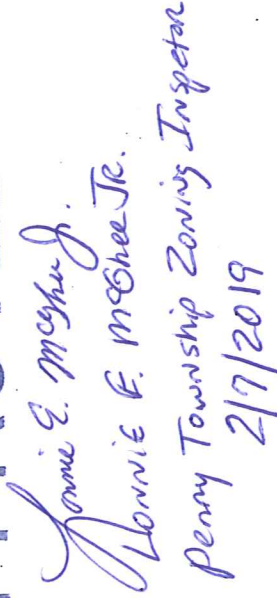 Lonnie E. McGhee Jr.
Lonnie E. McGhee Jr.
Perry Township Zoning Inspector
2/7/2019